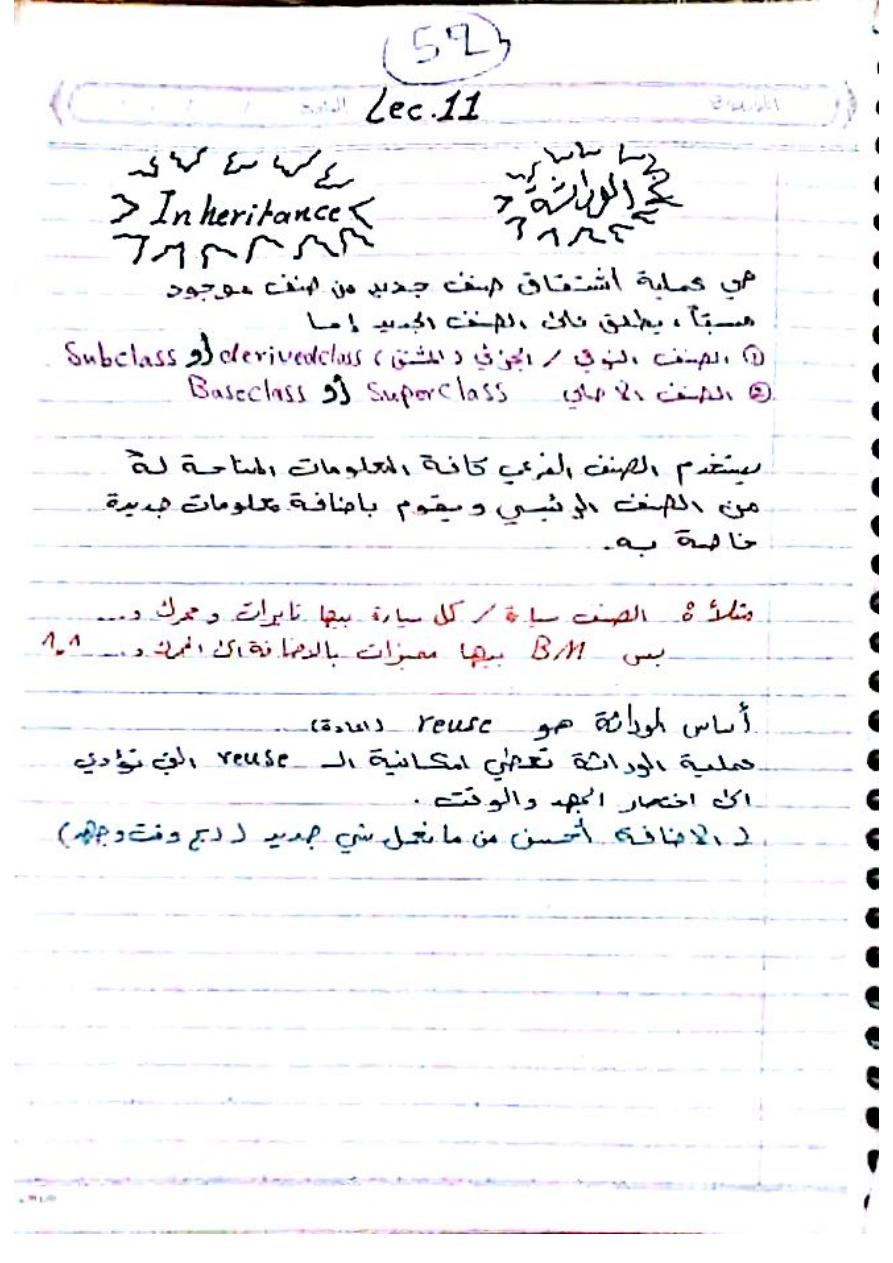 52
Lec.11
الوراثة Inheritance
هي عملية اشتقاق صنف جديد من صنف موجود
مسبقاً، يطلق على الصنف الجديد إما
① الصنف / الجزئي (المشتق) derivedclass أو Subclass
② الصنف الاصلي SuperClass أو Baseclass
يستخدم الصنف الفرعي كافة المعلومات المتاحة لهُ
من الصنف الرئيسي ويقوم باضافة معلومات جديدة
خاصة به.
مثلاً: الصنف سيارة / كل سيارة بيها تايرات ومحرك و...
بس BM بيها مميزات بالاضافة الى المحرك و... ^.^
أساس الوراثة هو reuse (اعادة)
عملية الوراثة تعطي امكانية الـ reuse التي تؤدي
الى اختصار الجهد والوقت.
(الاضافة أحسن من ما نعمل شي جديد (ربح وقت وجهد)